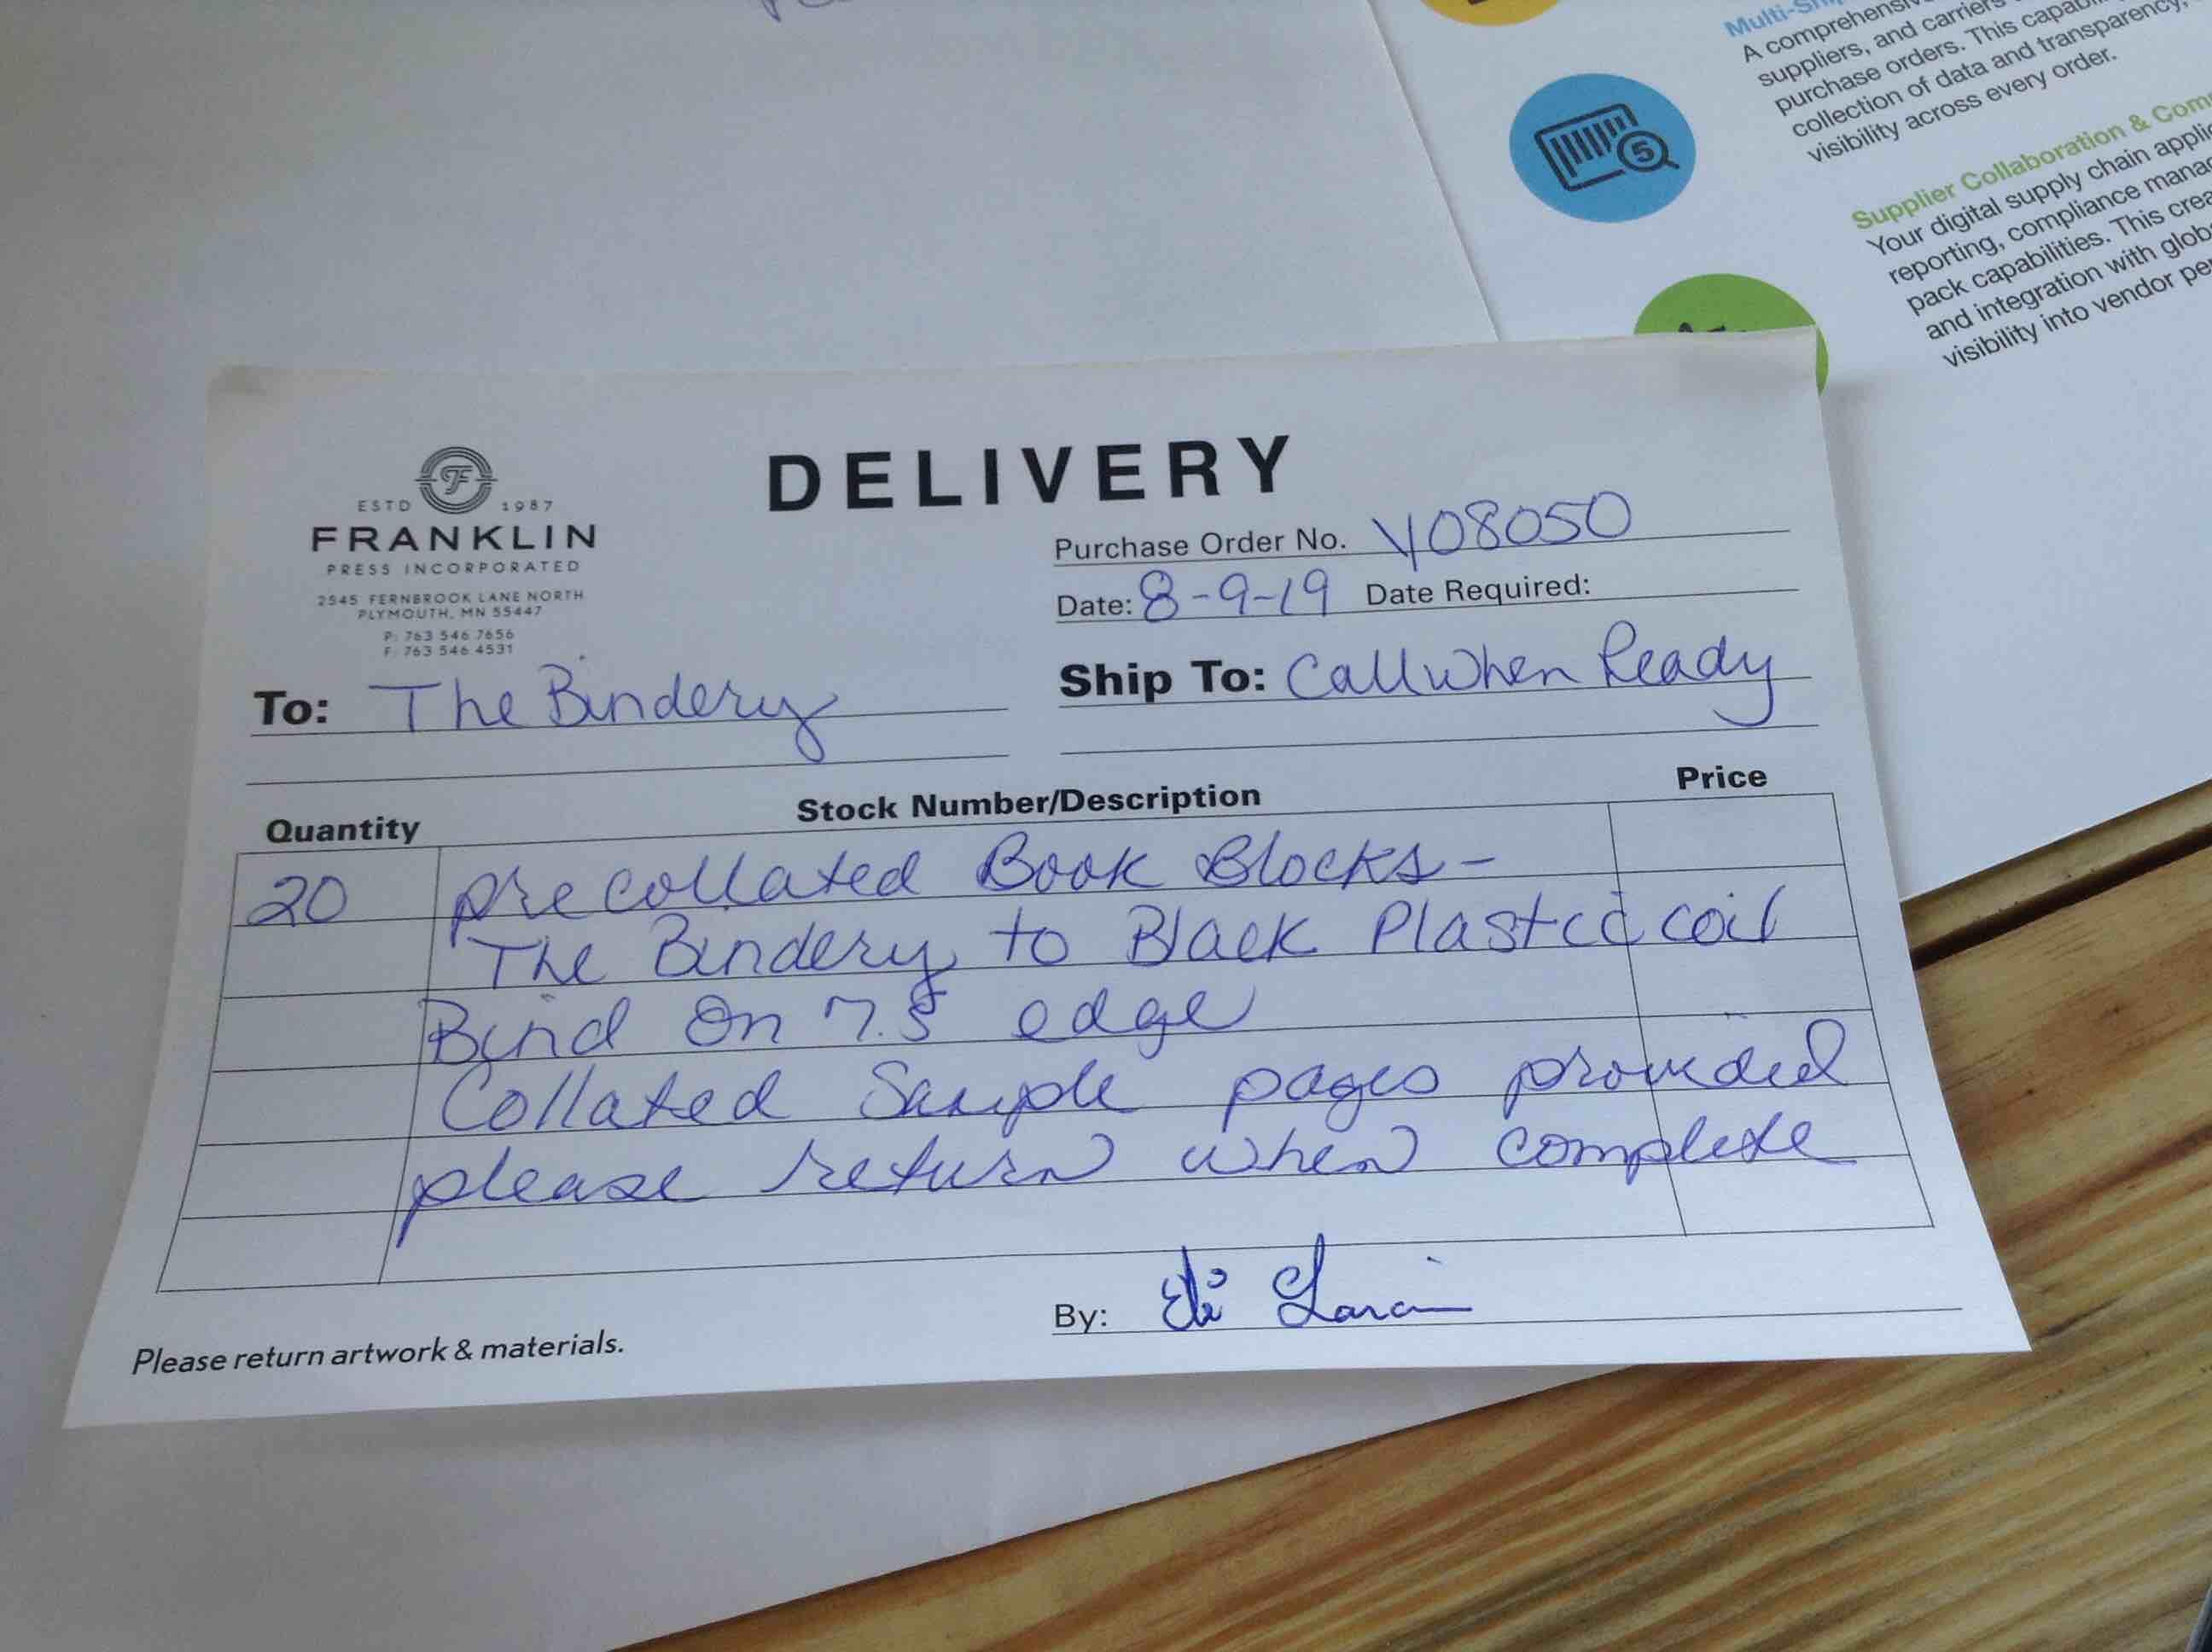 Multi-Sh
A comprehensiv
suppliers, and carriers
purchase orders. This capabil
collection of data and transparency,
visibility across every order.
5
Supplier Collaboration & Com
Your digital supply chain applic
reporting, compliance mana
pack capabilities. This crea
and integration with glob
visibility into vendor pe
DELIVERY
F
ESTD 1987
FRANKLIN
PRESS INCORPORATED
2545 FERNBROOK LANE NORTH
PLYMOUTH, MN 55447
P: 763 546 7656
F: 763 546 4531
Purchase Order No. Y08050
Date: 8-9-19 Date Required:
To: The Bindery
Ship To: Call when Ready
Quantity Stock Number/Description Price
20 precollated Book Blocks -
The Bindery to Black Plastic coil
Bind on 7.5 edge
Collated Sample pages provided
please return when complete
By: Eli
Please return artwork & materials.